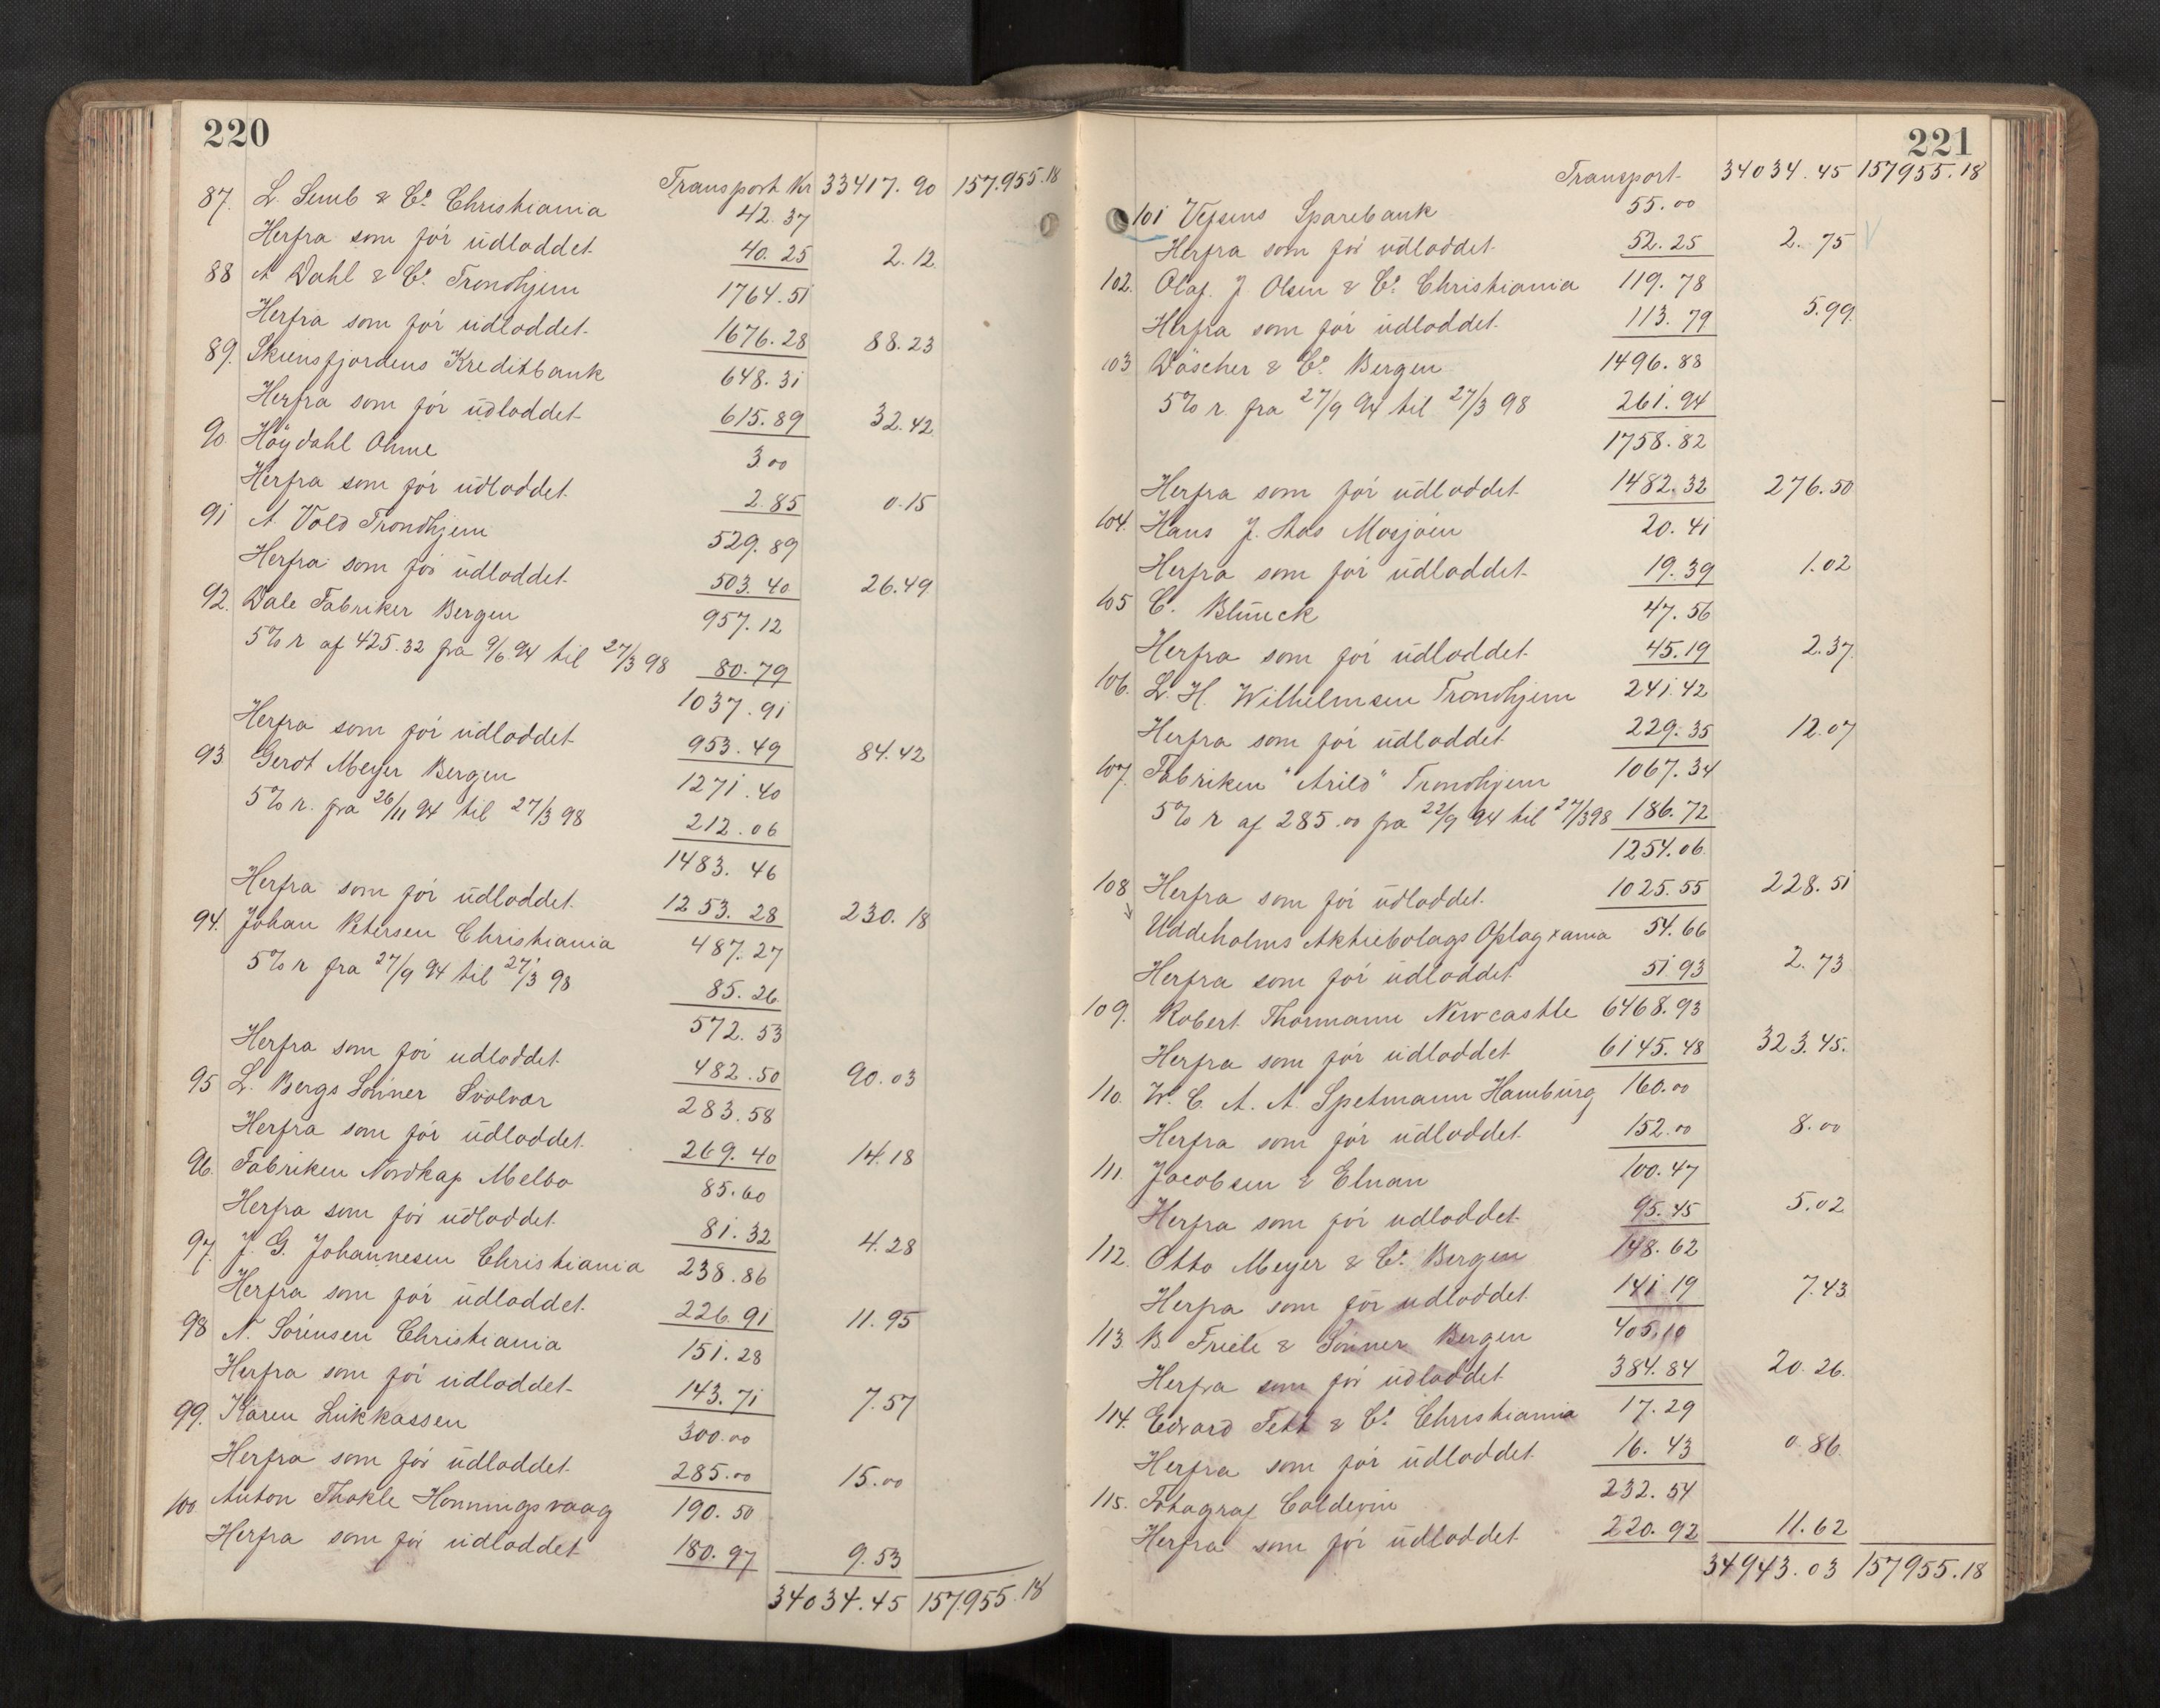 220
Transport Kr 33417.90 157.955.18
87. L. Semb & Co. Christiania 42.37
Herfra som før udloddet 40.25 2.12
88 A Dahl & Co. Trondhjem 1764.51
Herfra som før udloddet 1676.28 88.23
89. Skiensfjordens Kreditbank 648.31
Herfra som før udloddet 615.89 32.42
90. Höydahl Ohme 3.00
Herfra som før udloddet 2.85 0.15
91 A. Vold Trondhjem 529.89
Herfra som før udloddet 503.40 26.49
92. Dale Fabriker Bergen 957.12
5% r af 425.32 fra 9/6 94 til 27/3 98 80.79
1037.91
Herfra som før udloddet 953.49 84.42
93 Gerdt Meyer Bergen 1271.40
5% r. fra 26/11 94 til 27/3 98 212.06
1483.46
Herfra som før udloddet 1253.28 230.18
94. Johan Petersen Christiania 487.27
5% r fra 27/9 94 til 27/3 98 85.26
572.53
Herfra som før udloddet 482.50 90.03
95 L. Bergs Sønner Svolvær 283.58
Herfra som før udloddet 269.40 14.18
96. Fabriken Nordkap Melbo 85.60
Herfra som før udloddet 81.32 4.28
97. J. G. Johannesen Christiania 238.86
Herfra som før udloddet 226.91 11.95
98 N. Sørensen Christiania 151.28
Herfra som før udloddet 143.71 7.57
99. Karen Lukkassen 300.00
Herfra som før udloddet 285.00 15.00
100 Anton Thokle Honningsvaag 190.50
Herfra som før udloddet 180.97 9.53
34034.45 157.955.18
221
Transport 34034.45 157955.18
101 Vefsens Sparebank 55.00
Herfra som før udloddet 52.25 2.75
102. Olaf. J. Olsen & Co. Christiania 119.78
Herfra som før udloddet 113.79 5.99
103 Däscher & Co. Bergen 1496.88
5% r. fra 27/9 94 til 27/3 98 261.94
1758.82
Herfra som før udloddet 1482.32 276.50
104. Hans J. Aas Mosjøen 20.41
Herfra som før udloddet 19.39 1.02
105 C. Blunck 47.56
Herfra som før udloddet 45.19 2.37
106. L. H. Wilhelmsen Trondhjem 241.42
Herfra som før udloddet 229.35 12.07
107. Fabriken "Arild" Trondhjem 1067.34
5% r af 285.00 fra 22/9 94 til 27/3 98 186.72
1254.06
108 Herfra som før udloddet 1025.55 228.51
Uddeholms Aktiebolags Oplag xania 54.66
Herfra som før udloddet 51.93 2.73
109. Robert Thormann Newcastle 6468.93
Herfra som før udloddet 6145.48 323.45.
110. W. C. A. A. Spetmann Hamburg 160.00
Herfra som før udloddet 152.00 8.00
111. Jacobsen & Elnan 100.47
Herfra som før udloddet 95.45 5.02
112. Otto Meyer & Co. Bergen 148.62
Herfra som før udloddet 141.19 7.43
113. B. Friele & Sønner Bergen 405.10
Herfra som før udloddet 384.84 20.26.
114. Edvard Fett & Co. Christiania 17.29
Herfra som før udloddet 16.43 0.86
115. Fotograf Coldevin 232.54
Herfra som før udloddet 220.92 11.62
34943.03 157955.18